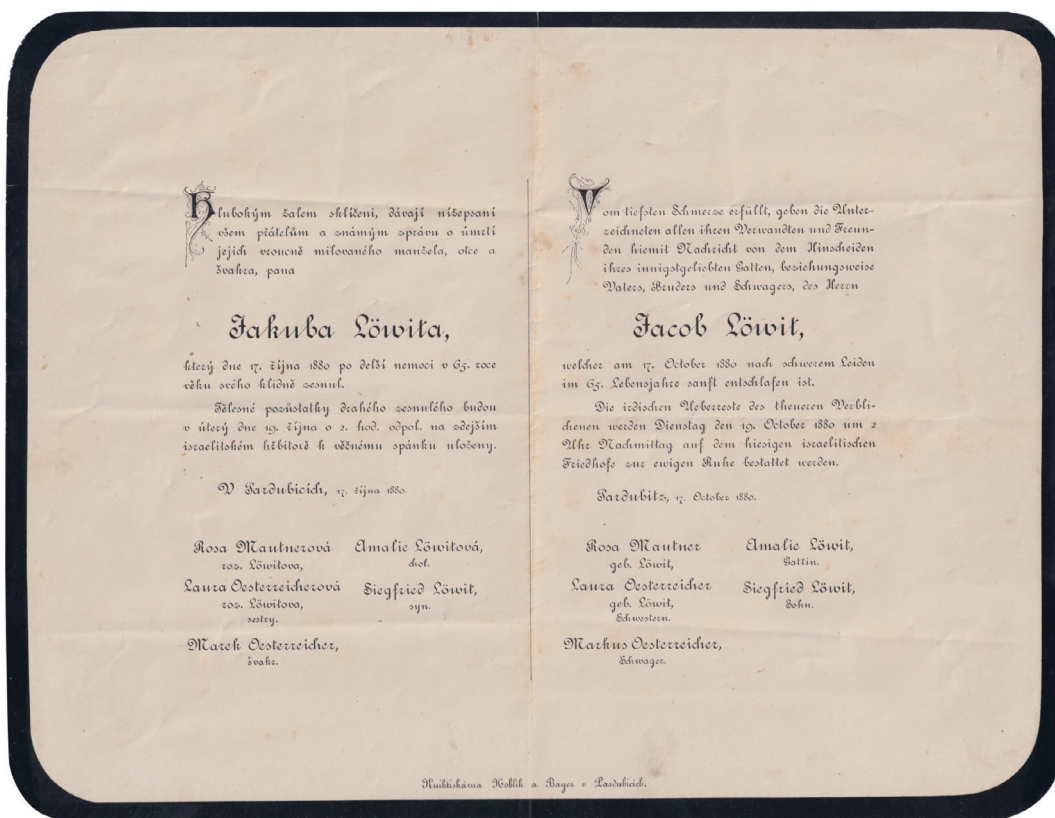 Hlubokým žalem sklíčeni, dávají nížepsaní
všem přátelům a známým zprávu o úmrtí
jejich vroucně milovaného manžela, otce a
švakra, pana
Jakuba Löwita,
který dne 17. října 1880 po delší nemoci v 65. roce
věku svého klidně zesnul.
Tělesné pozůstatky drahého zesnulého budou
v úterý dne 19. října o 2. hod. odpol. na zdejším
israelitském hřbitově k věčnému spánku uloženy.
V Pardubicích, 17. října 1880.
Rosa Mautnerová
roz. Löwitova,
Amalie Löwitová,
chot.
Laura Oesterreicherová
roz. Löwitova,
sestry.
Siegfried Löwit,
syn.
Marek Oesterreicher,
švakr.
Vom tiefsten Schmerze erfüllt, geben die Unter-
zeichneten allen ihren Verwandten und Freun-
den hiemit Nachricht von dem Hinscheiden
ihres innigstgeliebten Gatten, beziehungsweise
Vaters, Bruders und Schwagers, des Herrn
Jacob Löwit,
welcher am 17. October 1880 nach schwerem Leiden
im 65. Lebensjahre sanft entschlafen ist.
Die irdischen Ueberreste des theueren Verbli-
chenen werden Dienstag den 19. October 1880 um 2
Uhr Nachmittag auf dem hiesigen israelitischen
Friedhofe zur ewigen Ruhe bestattet werden.
Pardubitz, 17. October 1880.
Rosa Mautner
geb. Löwit,
Amalie Löwit,
Gattin.
Laura Oesterreicher
geb. Löwit,
Schwestern.
Siegfried Löwit,
Sohn.
Markus Oesterreicher,
Schwager.
Knihtiskárna Hoblík a Bayer v Pardubicích.